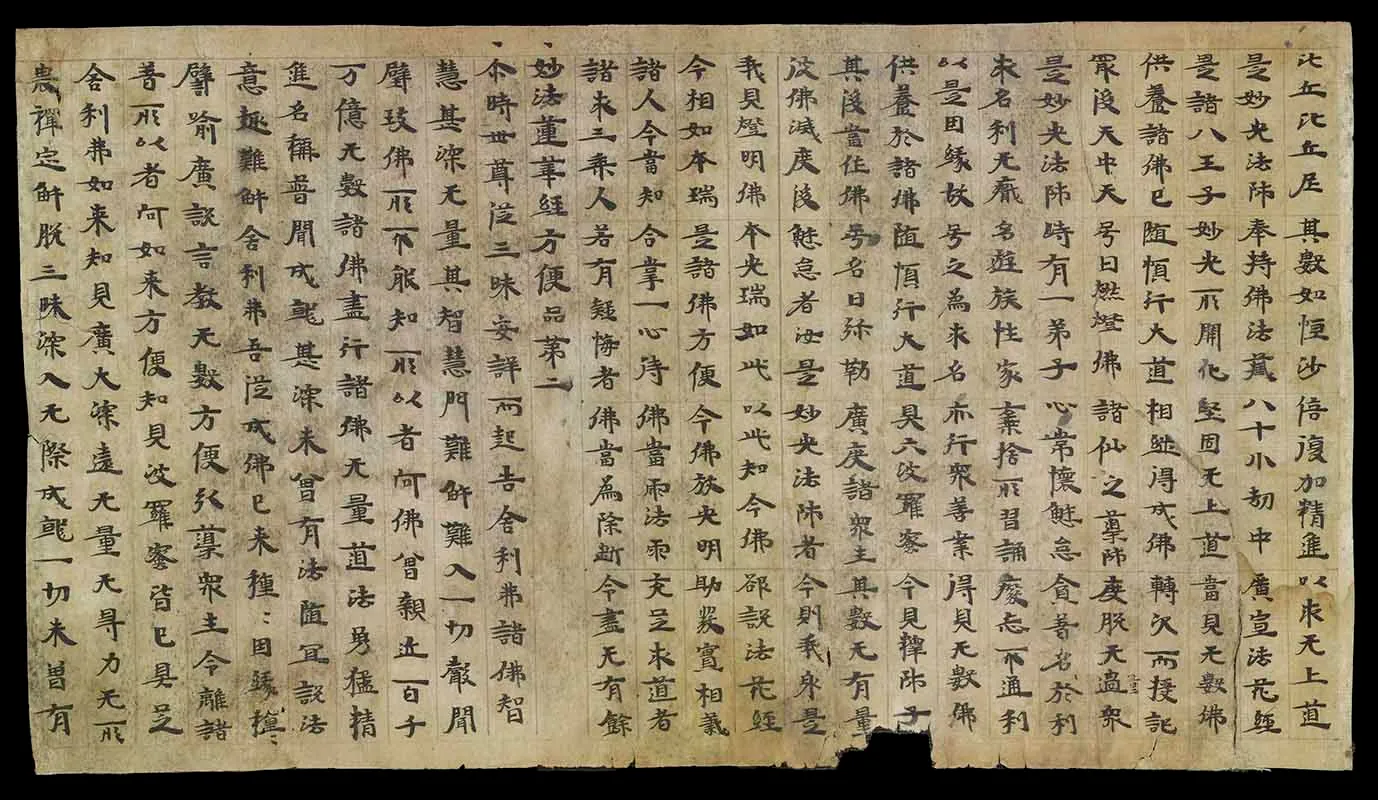 比丘比丘尼 其數如恒沙 倍復加精進 以求无上道
是妙光法師 奉持佛法藏 八十小劫中 廣宣法花經
是諸八王子 妙光所開化 堅固无上道 當見无數佛
供養諸佛已 随順行大道 相継得成佛 轉次而授記
最後天中天 号曰燃燈佛 諸仙之導師 度脱无量衆
是妙光法師 時有一弟子 心常懷懈怠 貪著名於利
求名利无猒 多遊族性家 棄捨所習誦 癈忘不通利
以是因縁故 号之為求名 亦行衆善業 得見无數佛
供養於諸佛 随順行大道 具六波羅蜜 今見釋師子
其後當作佛 号名曰弥勒 廣度諸衆生 其數无有量
彼佛滅度後 懈怠者汝是 妙光法師者 今則我身是
我見燈明佛 本光瑞如此 以此知今佛 欲説法花經
今相如本瑞 是諸佛方便 今佛放光明 助發實相義
諸人今當知 合掌一心待 佛當雨法雨 充足求道者
諸求三乘人 若有疑悔者 佛當為除断 令盡无有餘
妙法蓮華經方便品第二
尒時世尊從三昧安詳而起告舍利弗諸佛智
慧甚深无量其智慧門難解難入一切聲聞
辟支佛所不能知所以者何佛曾親近百千
万億无數諸佛盡行諸佛无量道法勇猛精
進名稱普聞成就甚深未曾有法随冝説法
意趣難解舍利弗吾從成佛已来種〻因縁種〻
譬喻廣説言教无數方便引導衆生令離諸
著所以者何如来方便知見波羅蜜皆已具足
舍利弗如来知見廣大深遠无量无㝵力无所
畏禪定解脱三昧深入无際成就一切未曾有